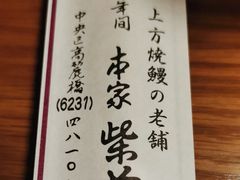 上方焼鰻の老舗
本家 柴
年间
中央区高麗橋
(6231)四八一〇